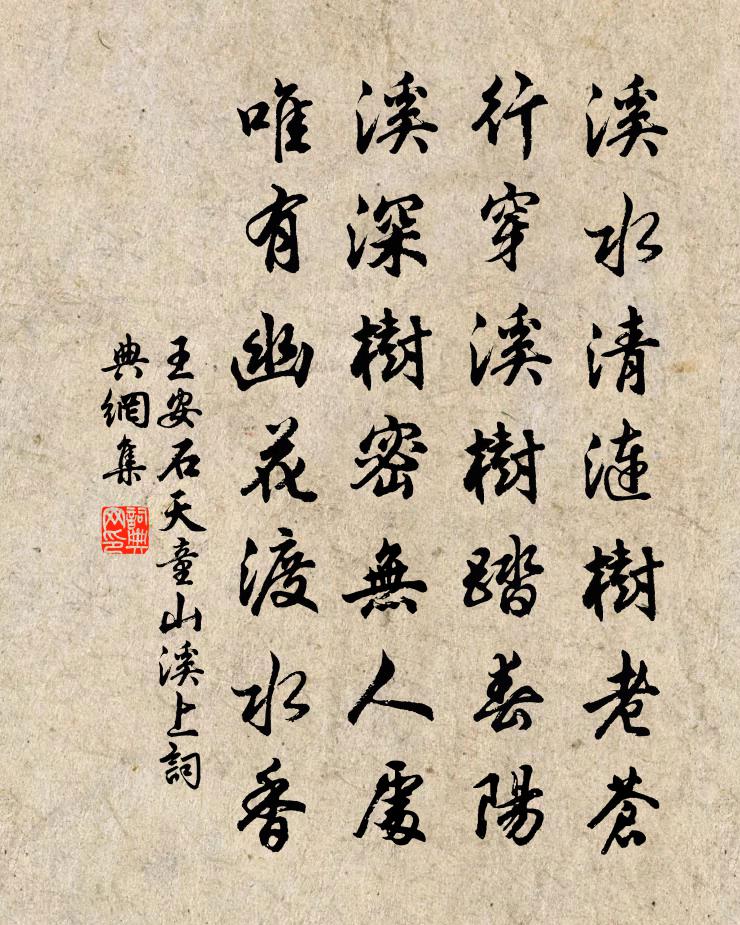 溪水清漣樹老蒼
行穿溪樹踏春陽
溪深樹密無人處
唯有幽花渡水香
王安石天童山溪上詞
典網集
詞典网印